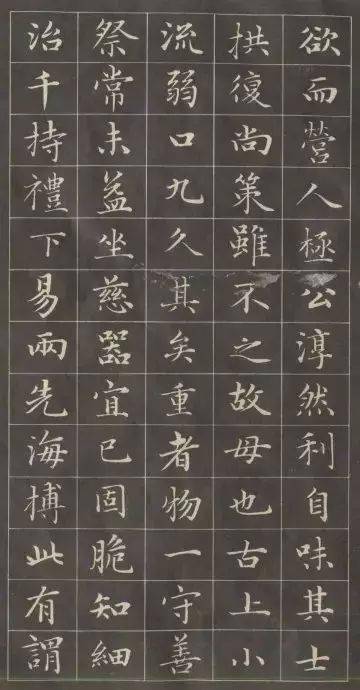 欲而營人極公淳然利自味其士
拱復尚策雖不之故母也古上小
流弱口九久其矣重者物一守善
祭常未益坐慈器宜已固脆知細
治千持禮下易兩先海搏此有謂